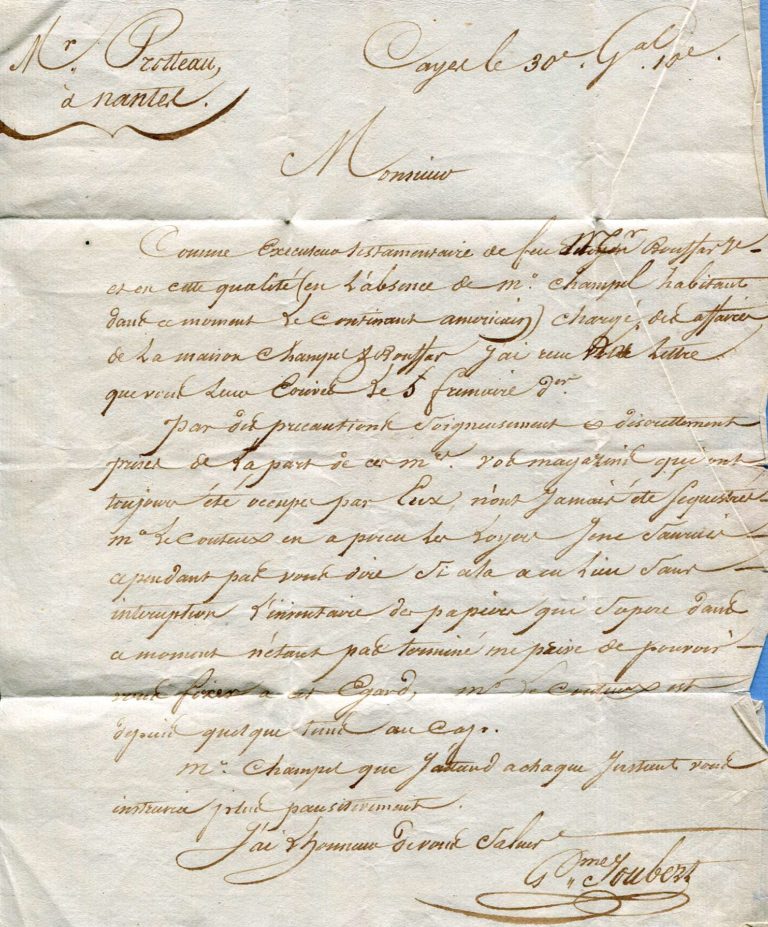 Mr. Protteau,
à nantes.
Cayes le 30e. Gal. 10e.
Monsieur
Comme Executeur testamentaire de feu Bouffar Je
et en cette qualité (en L'absence de mr. Champel habitant
dans ce moment Le Continant americain) chargé des affaires
de La maison Champel & Bouffar J'ai recu Votre Lettre
que vous Leur Ecrivez Le 5 frimaire dr.
Par des precautions Soigneusement & discrettement
prises de La part de ces mrs. vos magazins qui ont
toujours été occupés par Eux, n'ont Jamais été Sequestrés
mr. Le Couteux en a percu Les Loyers Je ne Saurais
cependant pas vous dire Si cela a eu Lieu Sans
interuption L'inventaire des papiers qui S'opere dans
ce moment n'étant pas terminé me prive de pouvoir
vous fixer a cet Egard, mr. Le Couteux est
depuis quelque tems au Cap.
mr. Champel que J'attends a chaque Instant vous
instruira plus positivement.
J'ai L'honneur De vous Saluer
Gme. Joubert